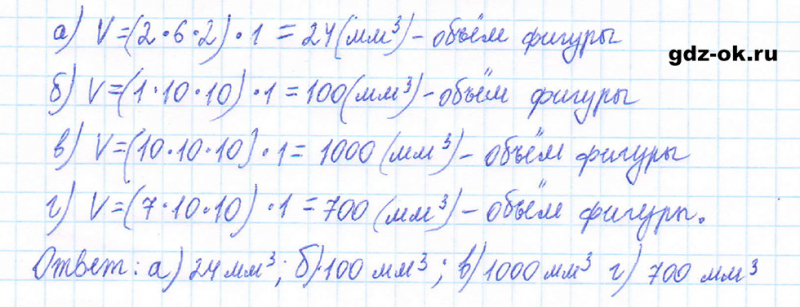 а) V=(2·6·2)·1=24(мм³)-объём фигуры
gdz-ok.ru
б) V=(1·10·10)·1=100(мм³)-объём фигуры
в) V=(10·10·10)·1=1000(мм³)-объём фигуры
г) V=(7·10·10)·1=700(мм³)-объём фигуры.
Ответ: а) 24 мм³; б) 100 мм³; в) 1000 мм³ г) 700 мм³